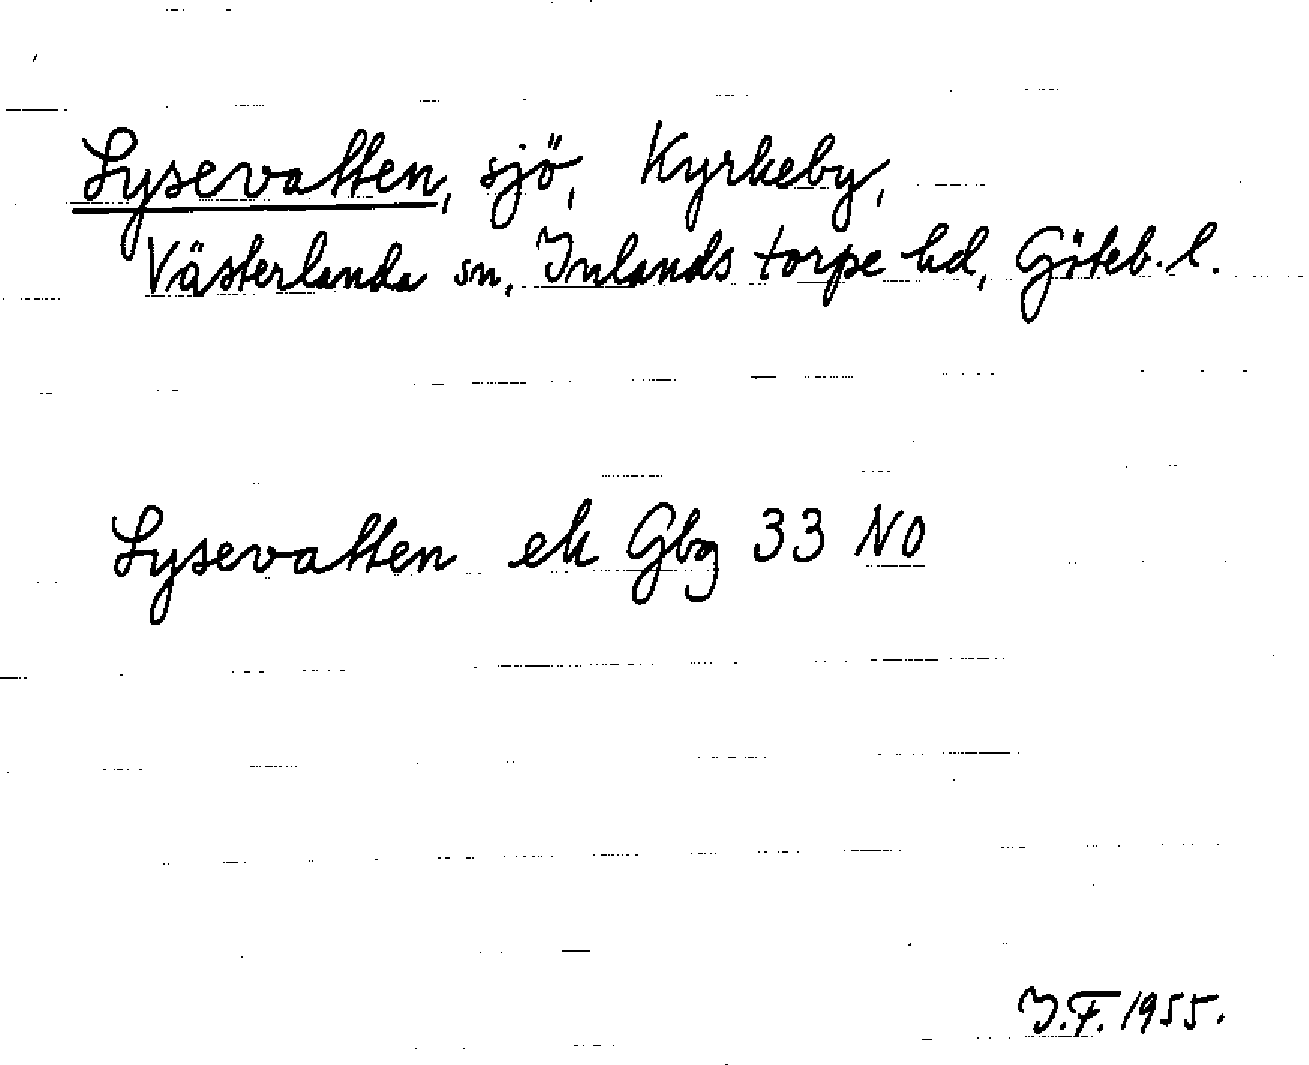 Lysevatten, sjö, Kyrkeby,
Västerlanda sn, Inlands torpe hd, Göteb. l.
Lysevatten ek Gbg 33 NO
I.F. 1955.